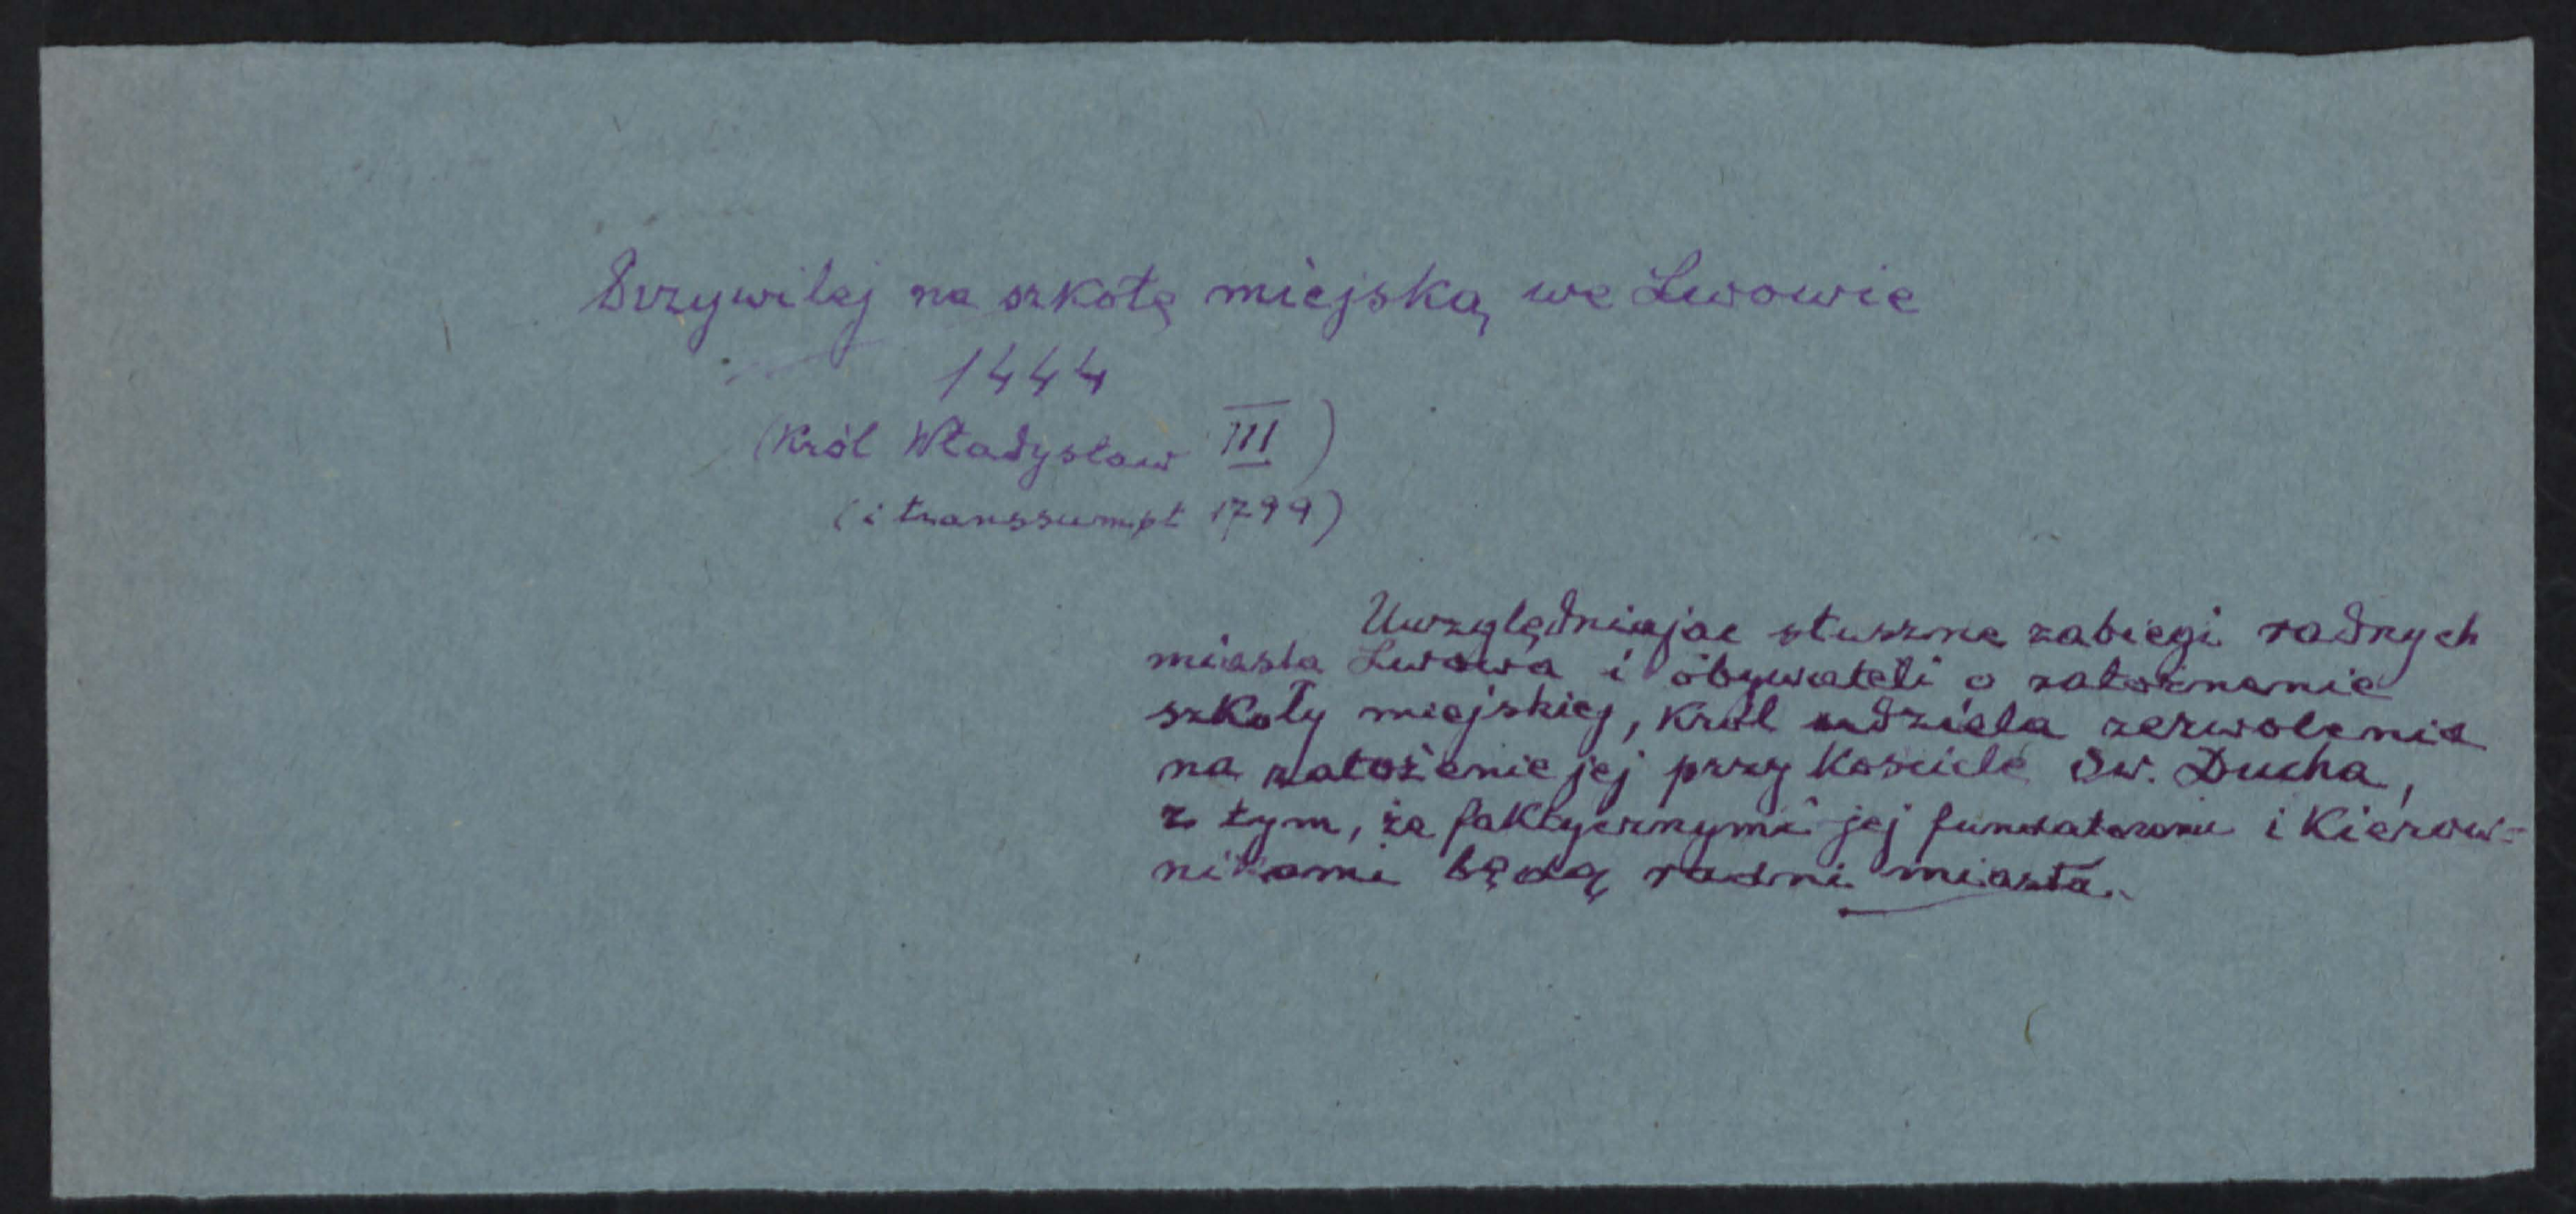 Przywilej na szkołę miejską we Lwowie
1444
(Król Władysław III)
(i transsumpt 1799)
Uwzględniając słuszne zabiegi radnych
miasta Lwowa i obywateli o założenie
szkoły miejskiej, Król udziela zezwolenia
na założenie jej przy Kościele Św. Ducha,
z tym, że faktycznymi jej fundatorami i Kierow-
nikami będą radni miasta.